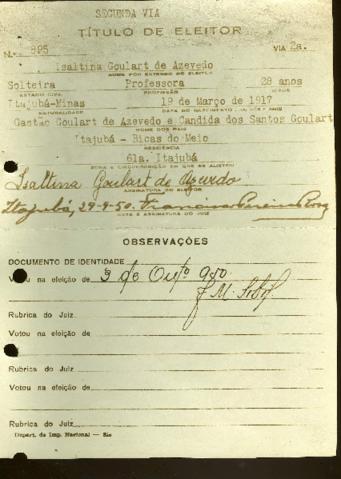 SEGUNDA VIA
TÍTULO DE ELEITOR
N.º 895 VIA 2a.
Isaltina Goulart de Azevedo
NOME POR EXTENSO DO ELEITOR
Solteira Professora 28 anos
ESTADO CIVIL PROFISSÃO IDADE
Itajubá-Minas 19 de Março de 1917
NATURALIDADE DATA DO NASCIMENTO
Gastão Goulart de Azevedo e Candida dos Santos Goulart
NOME DOS PAIS
Itajubá - Bicas do Meio
RESIDÊNCIA
61a. Itajubá
ZONA E CIRCUNSCRIÇÃO EM QUE SE ALISTOU
Isaltina Goulart de Azevedo
ASSINATURA DO ELEITOR
Itajubá, 29-9-50. Francisco Pereira
DATA E ASSINATURA DO JUIZ
OBSERVAÇÕES
DOCUMENTO DE IDENTIDADE
Votou na eleição de 3 de Outº 950
Rubrica do Juiz
Votou na eleição de
Rubrica do Juiz
Votou na eleição de
Rubrica do Juiz
Depart. de Imp. Nacional — Rio